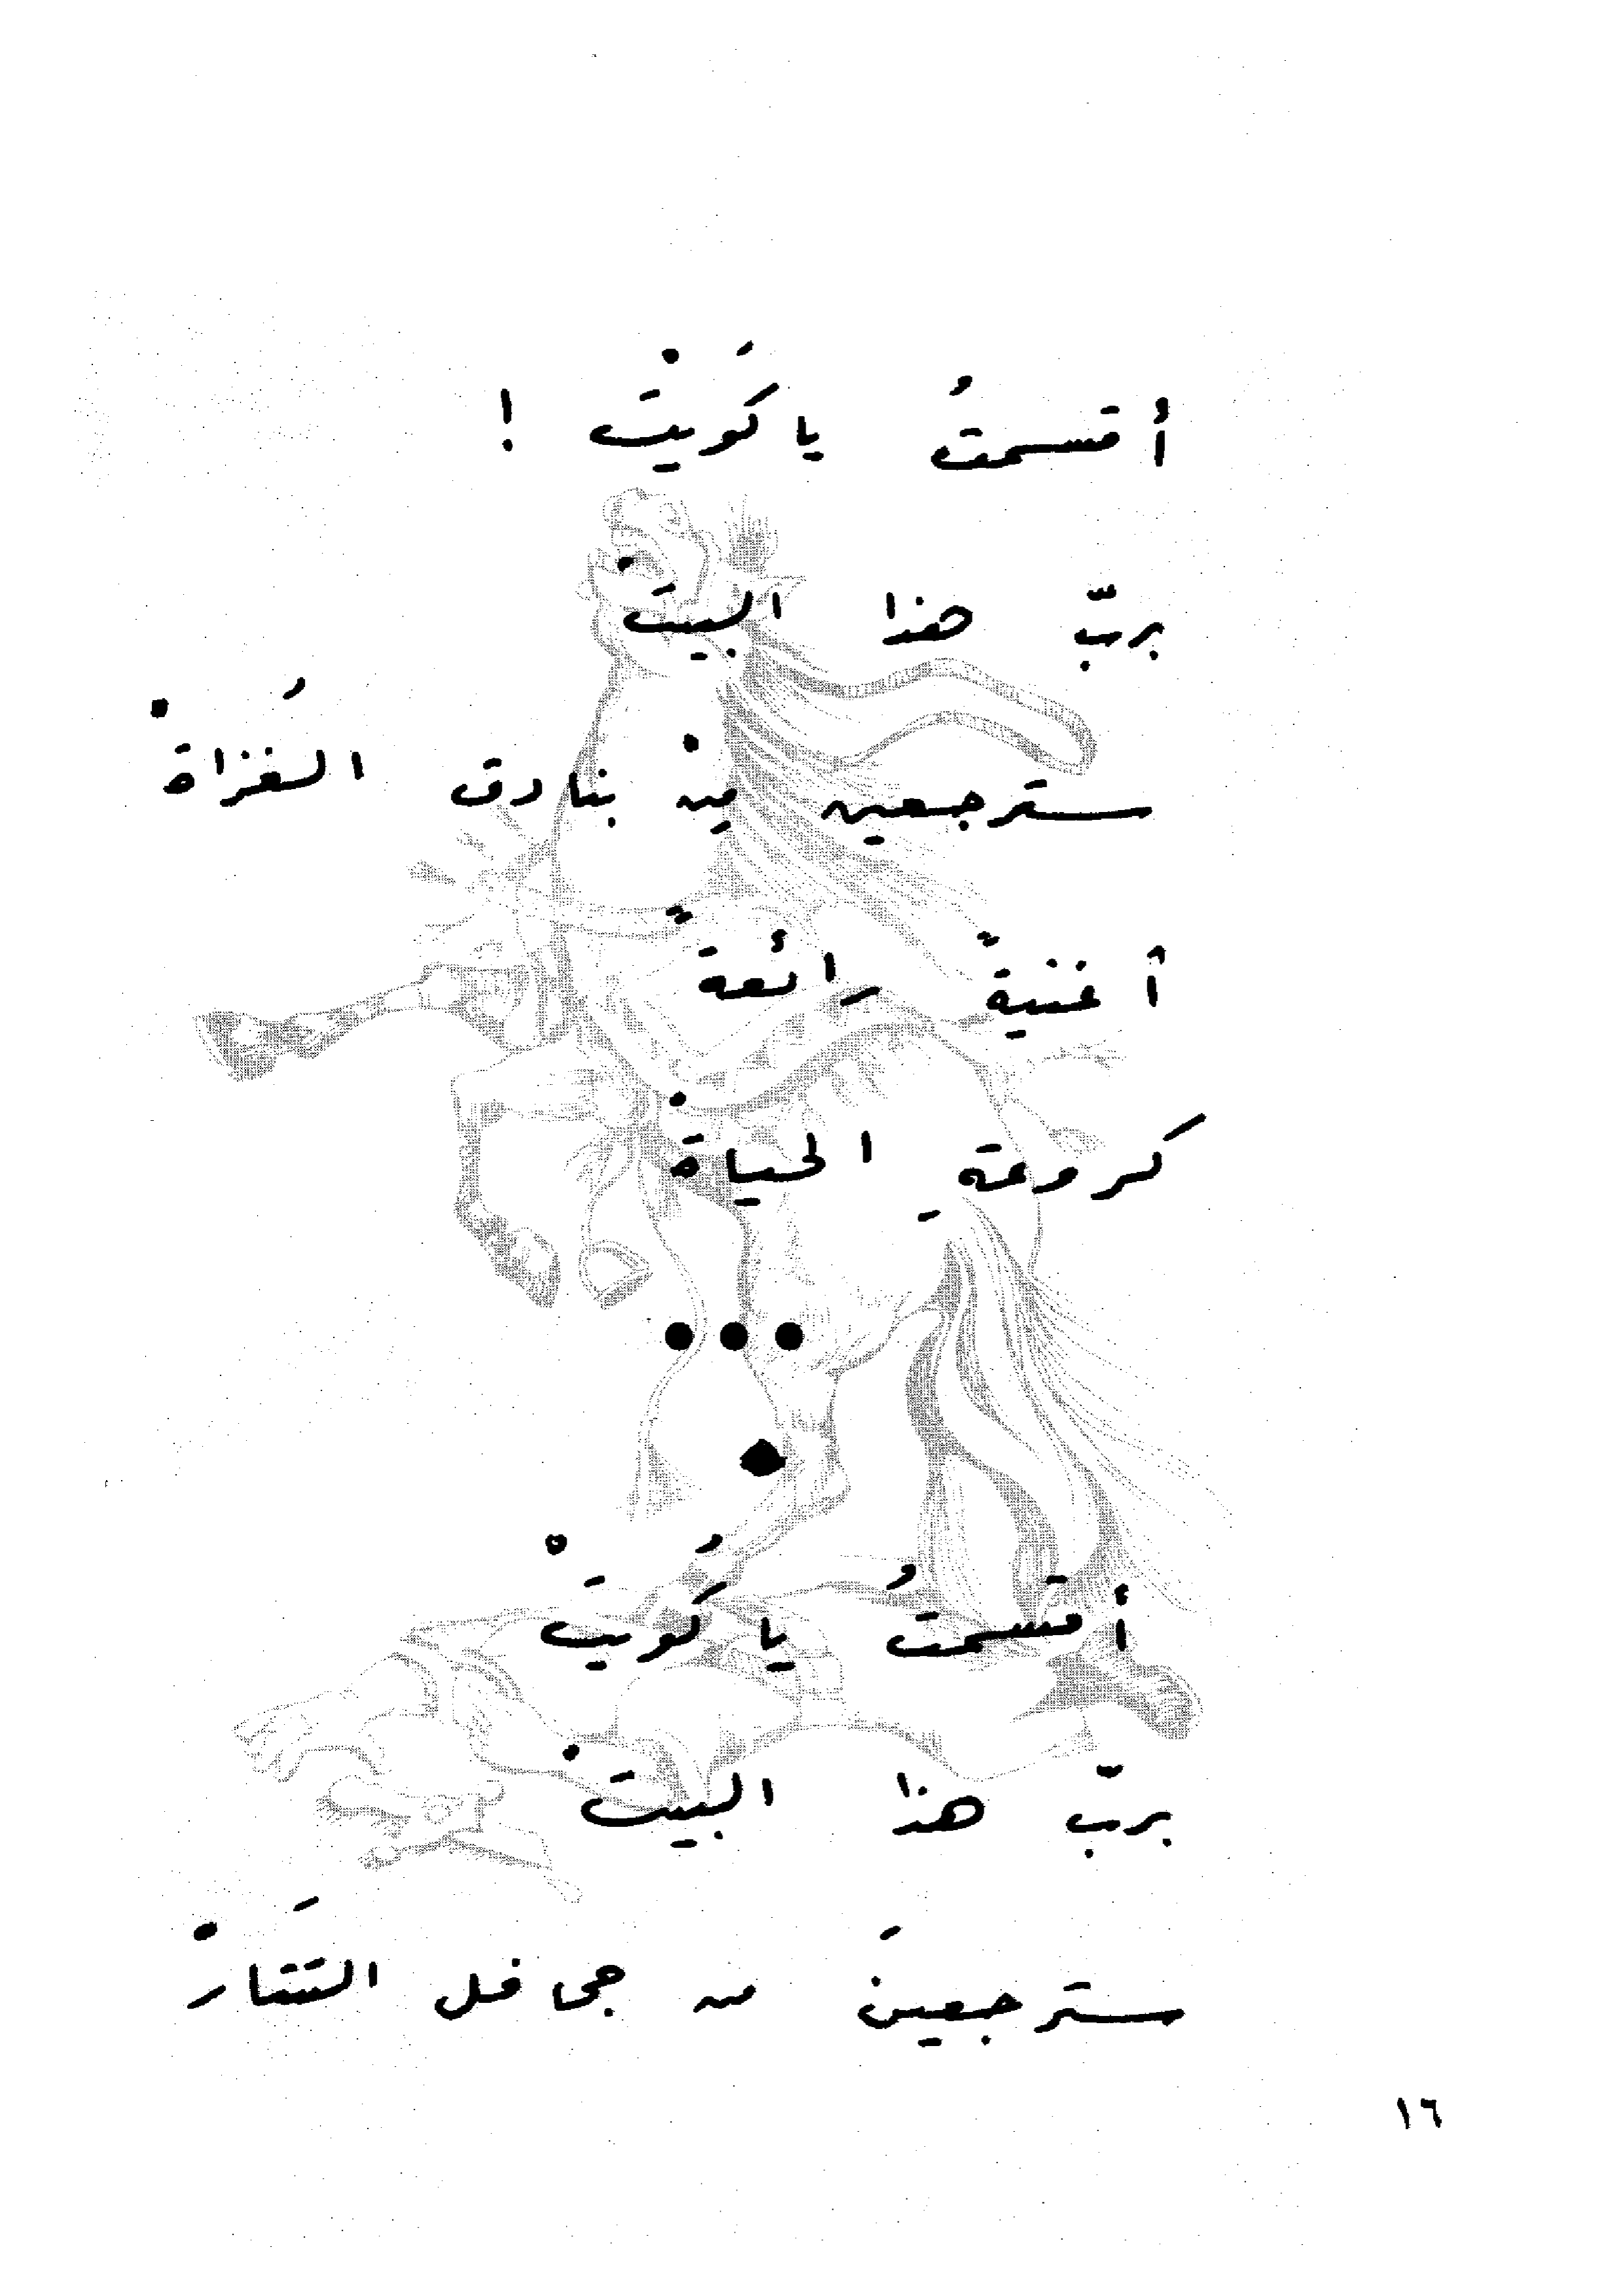 أقسمتُ ياكَويتْ !
بربّ هذا البيتْ
سترجعين مِنْ بنادق الغُزاةْ
أغنيةً رائعةً
كروعةِ الحياةْ
...
أقسمتُ ياكُويتْ
بربّ هذا البيتْ
سترجعينَ من جحافل التَتارْ
١٦